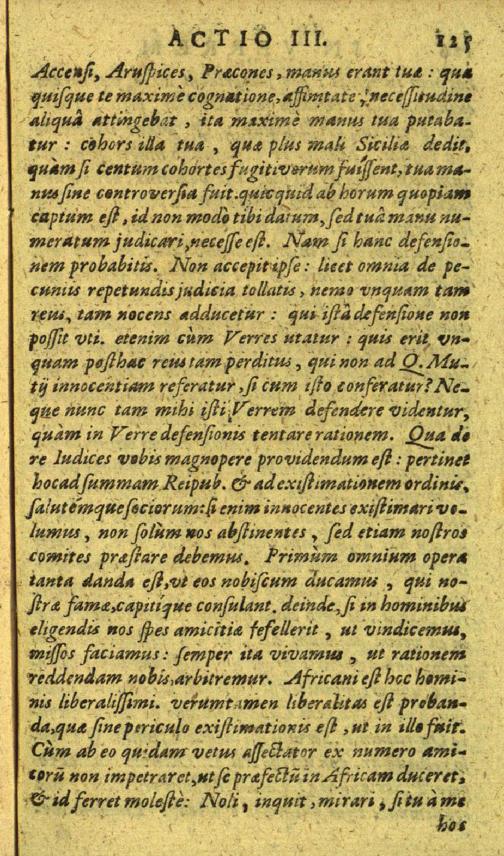 ACTIO III. 125
Accensi, Aruspices, Præcones, manus erant tuæ: qua
quisque te maximè cognatione, affinitate, necessitudine
aliquâ attingebat, ita maximè manus tua putaba-
tur: cohors illa tua, quæ plus mali Siciliæ dedit,
quàm si centum cohortes fugitivorum fuissent, tua ma-
nus sine controversia fuit. quicquid ab horum quopiam
captum est, id non modo tibi datum, sed tuâ manu nu-
meratum judicari, necesse est. Nam si hanc defensio-
nem probabitis. Non accepit ipse: licet omnia de pe-
cuniis repetundis judicia tollatis, nemo vnquam tam
reus, tam nocens adducetur: qui istâ defensione non
possit vti. etenim cùm Verres utatur: quis erit vn-
quam posthac reus tam perditus, qui non ad Q. Mu-
tij innocentiam referatur, si cum isto conferatur? Ne-
que nunc tam mihi isti Verrem defendere videntur,
quàm in Verre defensionis tentare rationem. Qua de
re Iudices vobis magnopere providendum est: pertinet
hoc ad summam Reipub. & ad existimationem ordinis,
salutémque sociorum: si enim innocentes existimari vo-
lumus, non solùm nos abstinentes, sed etiam nostros
comites præstare debemus. Primùm omnium opera
tanta danda est, vt eos nobiscum ducamus, qui no-
stræ famæ, capitíque consulant. deinde, si in hominibus
eligendis nos spes amicitiæ fefellerit, ut vindicemus,
missos faciamus: semper ita vivamus, ut rationem
reddendam nobis, arbitremur. Africani est hoc homi-
nis liberalissimi. verumtamen liberalitas est proban-
da, quæ sine periculo existimationis est, ut in illo fuit.
Cùm ab eo quidam vetus assectator ex numero ami-
corũ non impetraret, ut se præfectũ in Africam duceret,
& id ferret molestè: Noli, inquit, mirari, si tu à me
hoc